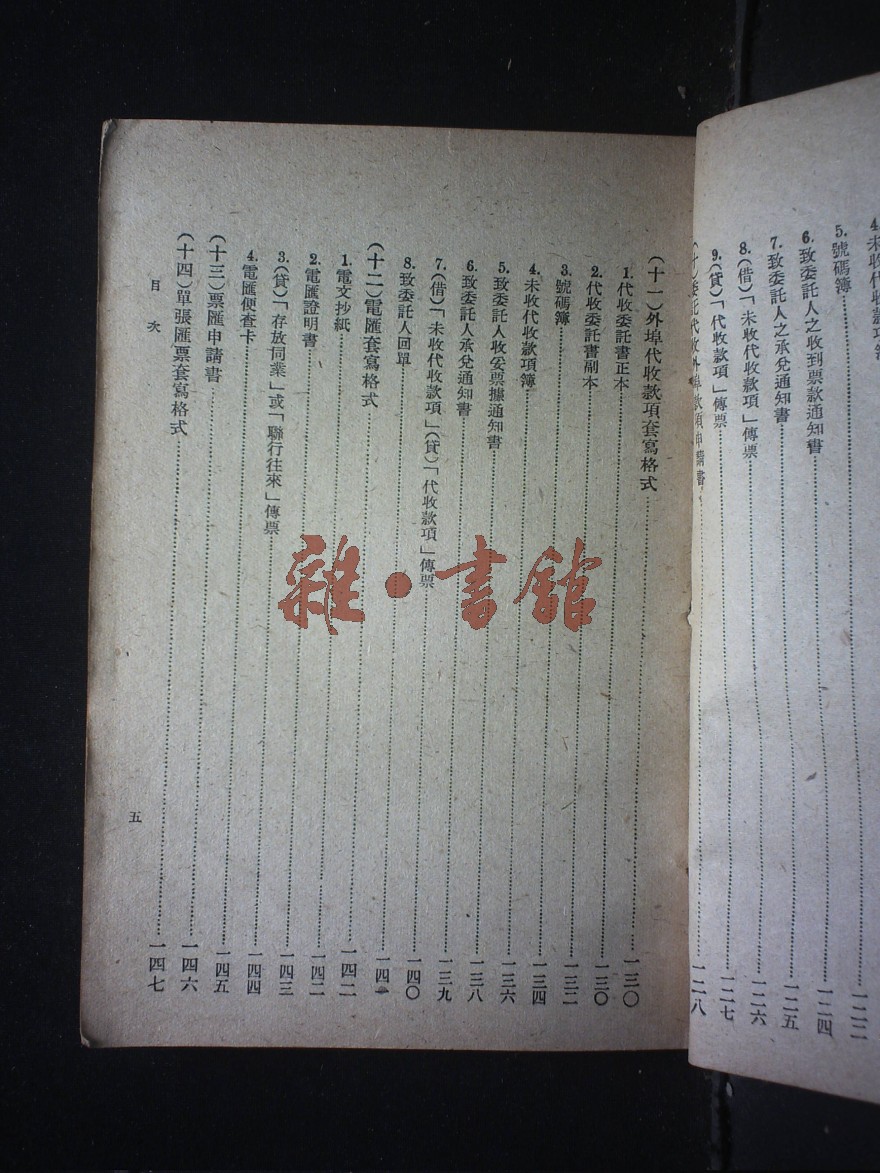 4. 未收代收款項簿
5. 號碼簿……一二二
6. 致委託人之收到票款通知書……一二四
7. 致委託人之承兌通知書……一二五
8. (借)「未收代收款項」傳票……一二六
9. (貸)「代收款項」傳票……一二七
(十)委託代收外埠款項申請書……一二八
(十一)外埠代收款項套寫格式……一三〇
1. 代收委託書正本……一三〇
2. 代收委託書副本……一三二
3. 號碼簿……一三四
4. 未收代收款項簿……一三六
5. 致委託人收妥票據通知書……一三八
6. 致委託人承兌通知書……一三九
7. (借)「未收代收款項」(貸)「代收款項」傳票……一四〇
8. 致委託人回單……一四一
(十二)電匯套寫格式……一四二
1. 電文抄紙……一四二
2. 電匯證明書……一四三
3. (貸)「存放同業」或「聯行往來」傳票……一四四
4. 電匯便查卡……一四五
(十三)票匯申請書……一四六
(十四)單張匯票套寫格式……一四七
目次
五
雜·書館